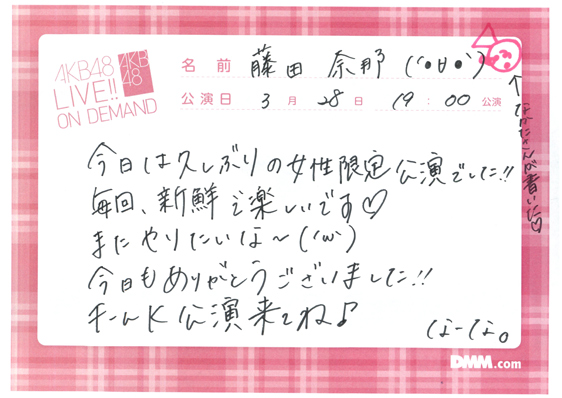 AKB48
LIVE!!
ON DEMAND
AKB
48
名 前 藤田 奈那 (´•∀•`)
公演日 3 月 28 日 19 : 00 公演
↑なかたさんが書いた♡
今日は久しぶりの女性限定公演でした!!
毎回、新鮮で楽しいです♡
またやりたいな〜(´ω`)
今日もありがとうございました!!
チームK公演来てね♪
なーな。
DMM.com